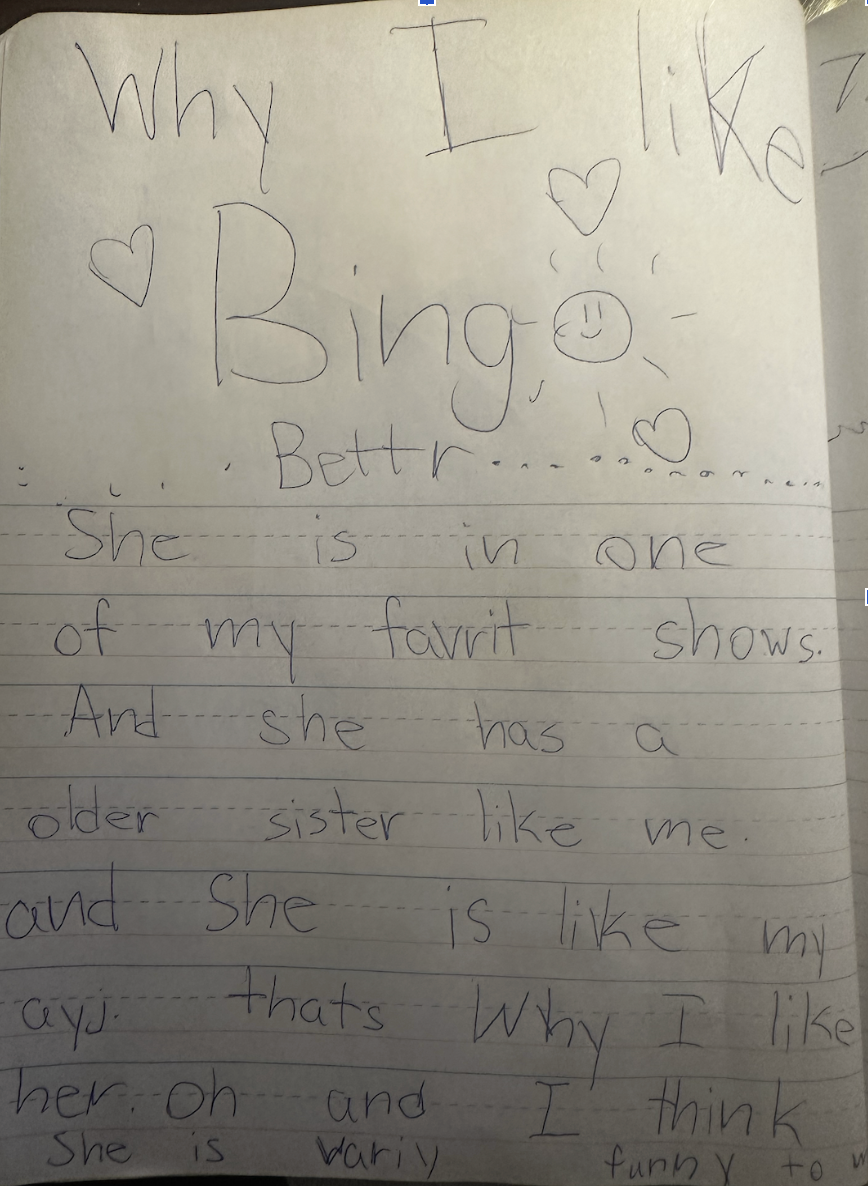 Why I like
Bingo
Bettr..................
She is in one
of my favrit shows.
And she has a
older sister like me.
and She is like my
ayj. thats Why I like
her. oh and I think
She is variy funny to